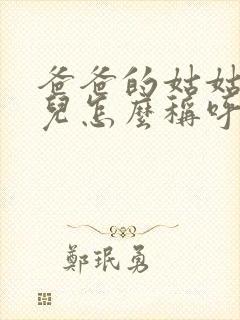 爸爸的姑姑
兒怎麼稱呼
鄭珉勇